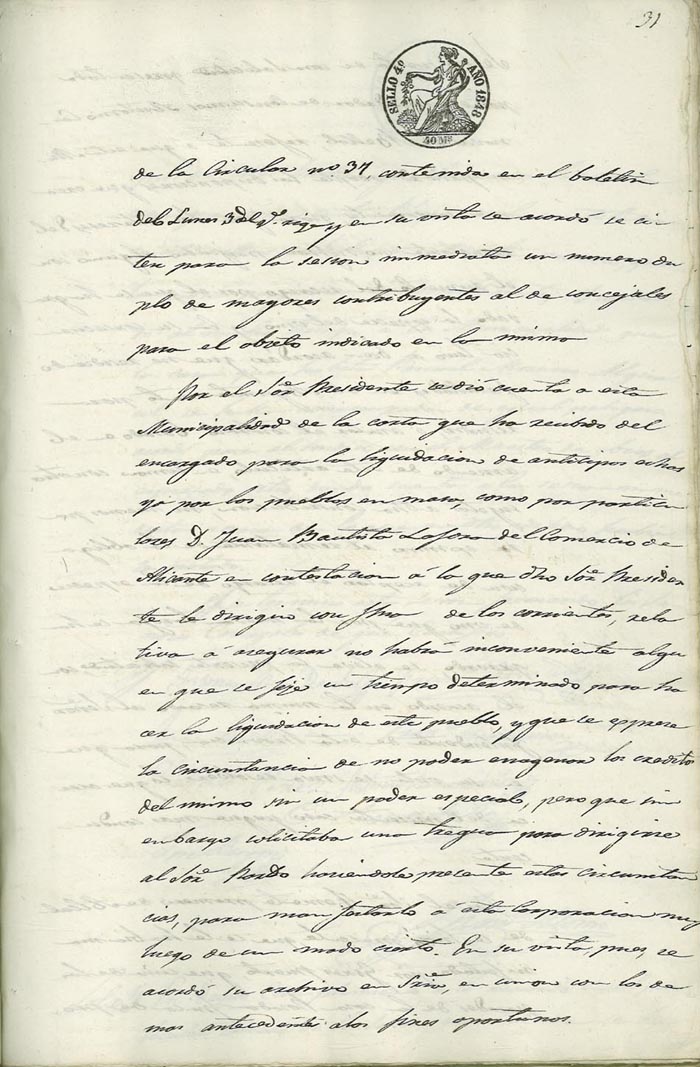 31
SELLO 4º AÑO 1848
40 Ms
de la Circular nº 37, contenida en el boletin
del Lunes 3 del qe. rige, y en su vista se acordó se ci
ten para la sesion immediata un numero du
plo de mayores contribuyentes al de concejales
para el objeto indicado en la misma
Por el Sor. Presidente se dió cuenta a esta
Municipalidad de la carta que ha recibido del
encargado para la liquidacion de anticipos echos
ya por los pueblos en masa, como por particu
lares D. Juan Bautista Lafora del Comercio de
Alicante en contestacion á la que dho Sor. Presiden
te le dirigio con fha de los corrientes, rela
tiva á asegurar no habrá inconveniente algu
en que se fije un tiempo determinado para ha
cer la liquidacion de este pueblo, y que se esprese
la circunstancia de no poder enagenar los creditos
del mismo sin un poder especial, pero que sin
embargo solicitaba una tregua para dirigirse
al Sor. Pardo haciendole presente estas circunstan
cias, para manifestarlo á esta Corporacion muy
luego de un modo cierto. En su vista, pues, se
acordó su archivo en Sria, en union con los de
mas antecedentes a los fines oportunos.